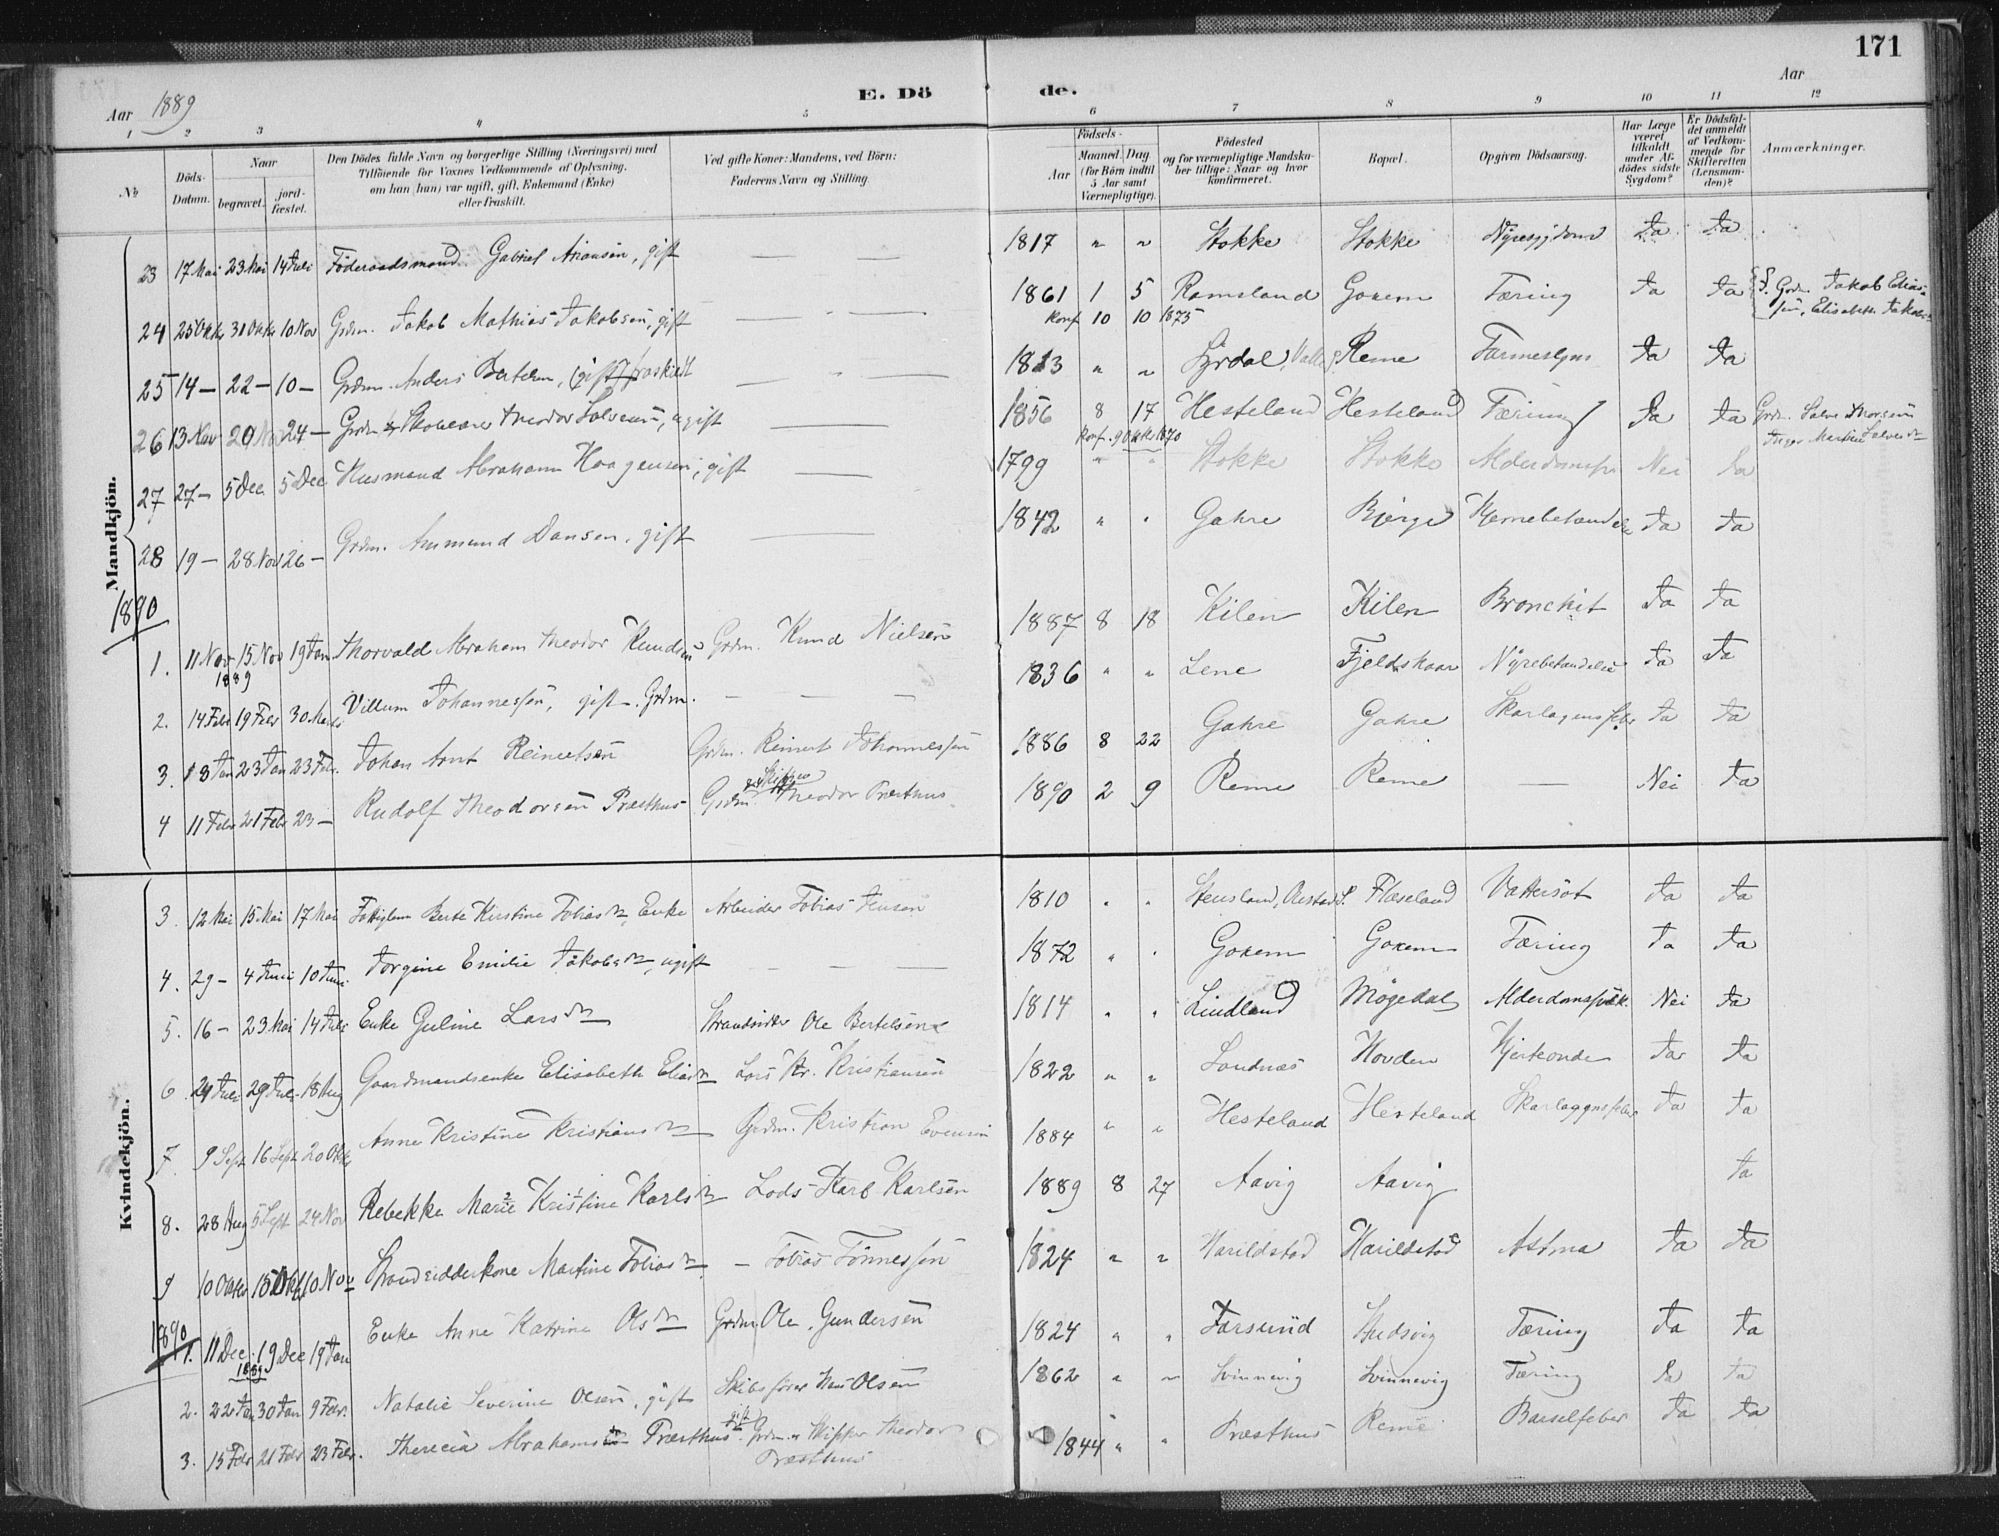 171
Aar 1889 E. Dö de. Aar
1 2 3 4 5 6 7 8 9 10 11 12
No. Döds-Datum. Naar begravet. jord-fæstet. Den Dödes fulde Navn og borgerlige Stilling (Næringsvei) med Tilföiende for Voxnes Vedkommende af Oplysning, om han (hun) var ugift, gift, Enkemand (Enke) eller fraskilt. Ved gifte Koner: Mandens, ved Börn: Faderens Navn og Stilling. Födsels- Aar Maaned. Dag (for Börn indtil 5 Aar samt Værnepligtige). Födested og for værnepligtige Mandska-ber tillige: Naar og hvor konfirmeret. Bopæl. Opgiven Dödsaarsag. Har Læge været tilkaldt under Af-dödes sidste Sygdom? Er Dödsfal-det anmeldt af Vedkom-mende for Skifteretten (Lensman-den)? Anmærkninger.
Mandkjön.
23 17 Mai 23 Mai 14 Juli Föderaadsmand Gabriel Arionsen, gift — — 1817 " " Stokke Stokke Nyresygdom Ja Ja
24 25 Oktr 31 Oktr 10 Nov Grdm. Jakob Mathias Jakobsen, gift — " — 1861 1 5 Ramsland Goxem Tæring Ja Ja S. Grdm. Jakob Elias-
sen, Elisabeth Jakobs
konf 10 10 1875
25 14 — 22 — 10 — Grdm. Anders Bertelsen, (gift) fraskildt — " — 1813 " " Syrdal, Reme Ja Ja
26 13 Nov 20 Nov 24 — Grdm & Theodor Salvesen, ugift — 1856 8 17 Hesteland Hesteland Tæring Ja Ja Grdm. Salve Thorsen
Martine Salvesdr
konf. 9 Oktr 1870
27 27 — 5 Dec. 5 Dec Husmand Abraham Haagensen, gift — 1799 " " Stokke Stokke Alderdomssv Nei Ja
28 19 — 28 Nov 26 — Grdm. Aumund Dansen, gift — 1842 " " Gahre Bjerge Hjernebetændelse Ja Ja
1890
1. 11 Nov 15 Nov 19 Jan Thorvald Abraham Theodor Knudsen Grdm. Knud Nielsen 1887 8 18 Kilen Kilen Bronchit Ja Ja
1889
2. 14 Febr 19 Febr 30 Marts Villum Johannessen, gift. Grdm. — — — 1836 " " Lene Fjeldskaar Nyrebetændelse Ja Ja
3. 18 Jan 23 Jan 23 Febr. Johan Arnt Reinertsen Grdm. Reinert Johannessen 1886 8 22 Gahre Gahre Skarlagensfeber Ja Ja
4 11 Febr 21 Febr 23 — Rudolf Theodorsen Præsthus Grdm. & Skipper Theodor Præsthus 1890 2 9 Reme Reme — Nei Ja
Kvindekjön.
3. 12 Mai 15 Mai 17 Mai Fattiglem Berte Kirstine Tobiasdr, Enke Arbeider Tobias Jensen 1810 " " Stensland, Flæseland Vattersot Ja Ja
4. 29 — 4 Juni 10 Juni Torgine Emilie Jakobsdr, ugift — — — 1872 " " Goxem Goxem Tæring Ja Ja
5. 16 — 23 Mai 14 Juli Enke Guline Larsdr Strandsidder Ole Bertelsen 1814 " " Lindland Mögedal Alderdomssvæk. Nei Ja
6. 24 Juli 29 Juli 18 Aug Gaardmandsenke Elisabeth Eliasdr Lars Kr. Kristiansen 1822 " " Londnæs Hovden Hjertonde Ja Ja
7. 9 Sept 16 Sept 20 Okt Anne Kristine Kristiansdr Grdm. Kristian Evensen 1884 " " Hesteland Hesteland Skarlagensfeber Ja Ja
8. 28 Aug 5 Sept 24 Nov Rebekke Marie Kristine Karlsdr Lods Karl Karlsen 1889 8 27 Aavig Aavig Ja
9 10 Oktr 15 Okt 10 Nov Strandsidderkone Martine Tobiasdr — Tobias Tönnessen 1824 " " Harildstad Harildstad Astma Ja Ja
1890
1. 11 Dec. 19 Dec 19 Jan Enke Anne Katrine Olsdr Grdm. Ole Gundersen 1824 " " Farsund Tæring Ja Ja
1889
2. 22 Jan 30 Jan 9 Febr. Natalie Severine Olsen, gift Skibsförer Olsen 1862 " " Svinnevig Svinnevig Tæring Ja Ja
3. 15 Febr 21 Febr 23 Febr. Therecia Abrahamsdr Præsthus gift Grdm. & Skipper Theodor 1844 " " Præsthus Reme Barselfeber Ja Ja
Præsthus